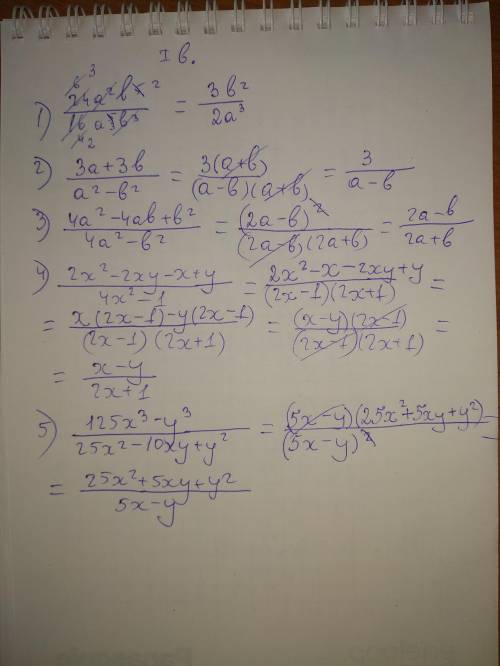 I в.
1) 24a²b⁵/16a⁵b³ = 3b²/2a³
2) 3a+3b/a²-b² = 3(a+b)/(a-b)(a+b) = 3/a-b
3) 4a²-4ab+b²/4a²-b² = (2a-b)²/(2a-b)(2a+b) = 2a-b/2a+b
4) 2x²-2xy-x+y/4x²-1 = 2x²-x-2xy+y/(2x-1)(2x+1) =
= x(2x-1)-y(2x-1)/(2x-1)(2x+1) = (x-y)(2x-1)/(2x-1)(2x+1) =
= x-y/2x+1
5) 125x³-y³/25x²-10xy+y² = (5x-y)(25x²+5xy+y²)/(5x-y)² =
= 25x²+5xy+y²/5x-y